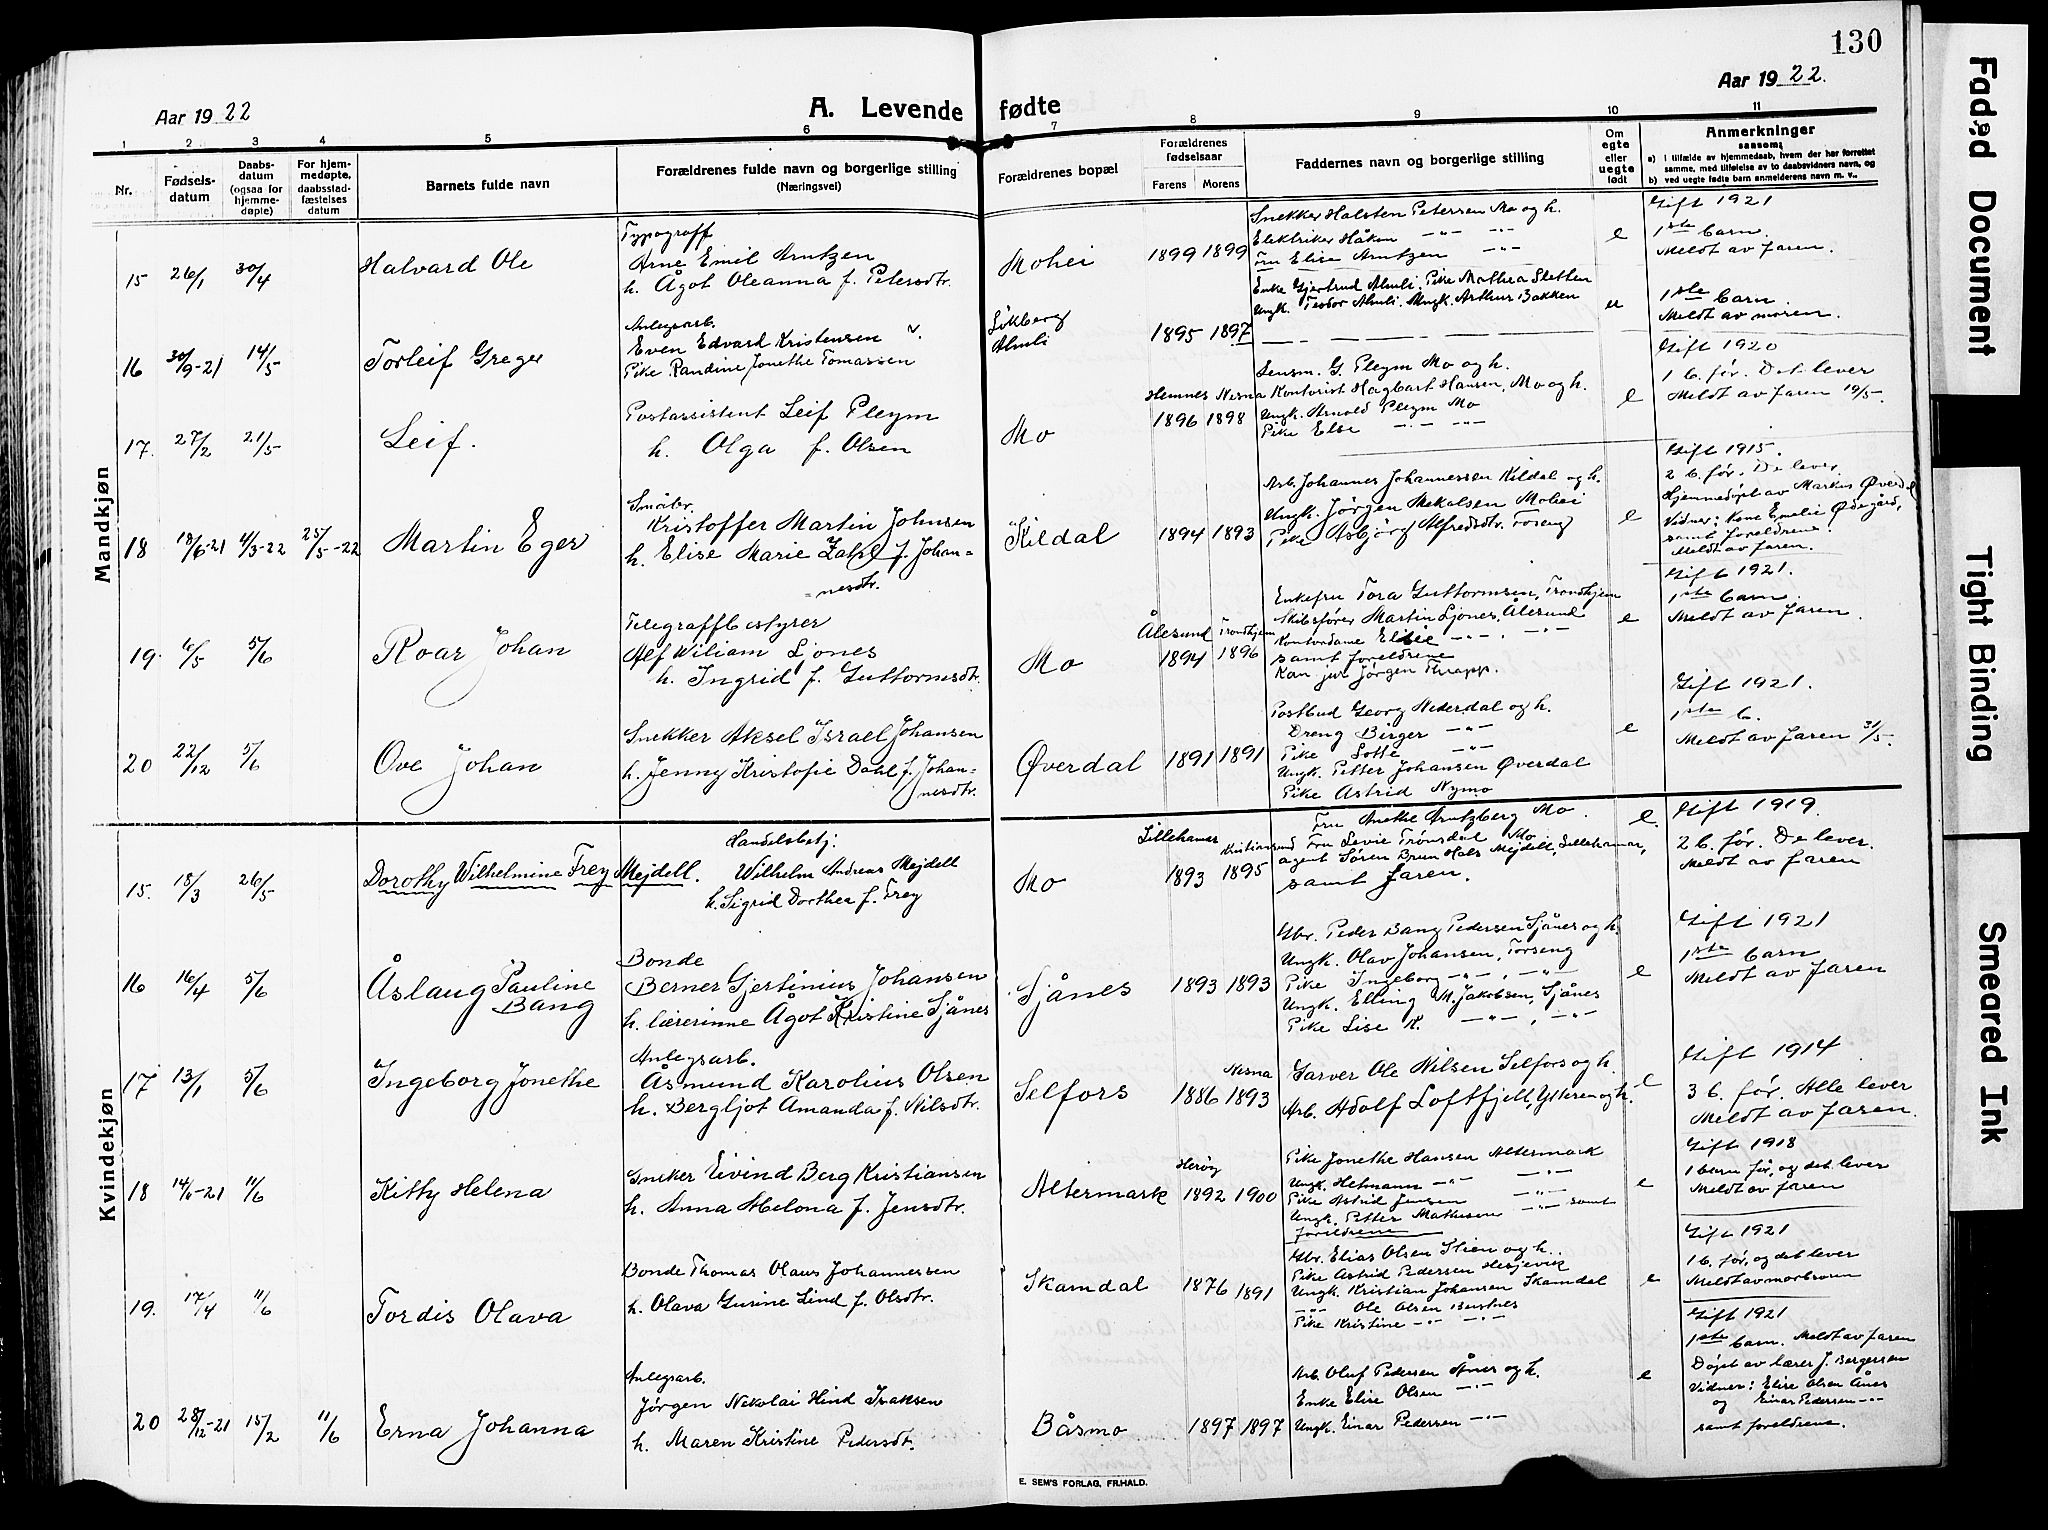 130
Aar 1922
A. Levende fødte
Aar 1922.
1 2 3 4 5 6 7 8 9 10 11
Nr.
Fødsels-datum
Daabs-datum (ogsaa for hjemme-døpte)
For hjem-medøpte, daabsstad-fæstelses datum
Barnets fulde navn
Forældrenes fulde navn og borgerlige stilling (Næringsvei)
Forældrenes bopæl
Forældrenes fødselsaar
Farens Morens
Faddernes navn og borgerlige stilling
Om egte eller uegte født
Anmerkninger
saasom:
a) i tilfælde av hjemmedaab, hvem der har forrettet samme, med tilføielse av to daabsvidners navn, og
b) ved uegte fødte barn anmelderens navn m. v..
Mandkjøn
15 26/1 30/4 Halvard Ole
Typograff
Arne Emil Arntzen
h. Ågot Oleanna f. Petersdtr.
Mohei 1899 1899
Snekker Halsten Petersen Mo og h.
Elektriker Håkon —"— —"—
Fru Elise Arntzen —"—
e
Gift 1921
1ste barn.
Meldt av faren.
16 30/9-21 14/5 Torleif Greger
Anlegsarb.
Even Edvard Kristensen
Pike Randine Jonethe Tomassen
Almli
1895 1897
Enke Gjertrud Almli. Pike Mathea Sletten
Ungk. Teodor Almli. Ungk. Arthur Bakken
1ste barn.
Meldt av moren.
17. 27/2 21/5 Leif.
Postassistent Leif Pleym
h. Olga f. Olsen
Mo
Hemnes Nesna
1896 1898
Lensm. G. Pleym Mo og h.
Kontorist Hagbart Hansen, Mo og h.
Ungk. Arnold Pleym Mo
Pike Else —"— —"—
e
Gift 1920
1 b. før. Det lever
Meldt av faren 19/5.
18 18/6-21 4/3-22 25/5-22 Martin Eger
Småbr.
Kristoffer Martin Johnsen
h. Elise Marie Zahl f. Johan-
=nesdtr.
Kildal 1894 1893
Arb. Johannes Johannessen Kildal og h.
Ungk. Jørgen Mekalsen Mohei
Pike Asbjørg Alfredsdtr. Toseng
e
Gift 1915.
2 b. før. De lever
Hjemmedøpt av Markus Øverdal
Vidner: Kone Emelie Ødegård,
samt foreldrene.
Meldt av faren.
19. 6/5 5/6 Roar Johan
Telegraffbestyrer
Alf Wiliam Sjones
h. Ingrid f. Guttormsdtr.
Mo
Ålesund Trondhjem
1894 1896
Enkefru Tora Guttormsen, Trondhjem
Skibsfører Martin Sjones, Ålesund
Kontordame Elise —"—, —"—
samt foreldrene
Kan jur Jørgen Thrapp.
e
Gift 1921.
1ste barn
Meldt av faren.
20 22/12 5/6 Ove Johan
Snekker Aksel Israel Johansen
h. Jenny Kristofie Dahl f. Johan=
nesdtr.
Øverdal 1891 1891
Postbud Georg Nederdal og h.
Dreng Birger —"—
Pike Lotte —"—
Ungk. Petter Johansen Øverdal
Pike Astrid Nymo
e
Gift 1921.
1ste b.
Meldt av faren 31/5.
Kvindekjøn
15. 18/3 26/5 Dorothy Wilhelmine Frey Mejdell.
Handelsbetj:
Wilhelm Andreas Mejdell
h. Sigrid Dorthea f. Frey
Mo
Lillehamer Kristiansund
1893 1895
Fru Anethe Arntzberg Mo.
Fru Levie Trønsdal Mo
agent Søren Brun Hals Mejdell, Lillehamar,
samt faren.
e.
Gift 1919
2 b. før. De lever.
Meldt av faren
16 16/4 5/6 Åslaug Pauline Bang
Bonde
Berner Gjertinius Johansen
h. lærerinne Ågot Kristine Sjånes
Sjånes 1893 1893
Gbr. Peder Bang Pedersen Sjånes og h.
Ungk. Olav Johansen, Torseng
Pike Ingeborg —"—, —"—
Ungk. Elling M. Jakobsen, Sjånes
Pike Lise K. —"—, —"—
e
Gift 1921
1ste barn
Meldt av faren
17 13/1 5/6 Ingeborg Jonethe
Anlegsarb.
Åsmund Karolius Olsen
h. Bergljot Amanda f. Nilsdtr.
Selfors
Nesna
1886 1893
Garver Ole Nilsen Selfors og h.
Arb. Adolf Loftfjell, Ytteren og h.
e
Gift 1914.
3 b. før. Alle lever
Meldt av faren.
18 14/6-21 11/6 Kitty Helena
Snekker Eivind Berg Kristiansen
h. Anna Helona f. Jensdtr.
Altermark
Herøy
1892 1900
Pike Jonethe Hansen Altermark
Ungk. Helmann —"— —"—
Pike Astrid Jensen —"—
Ungk. Petter Mathisen —"— samt
foreldrene
e
Gift 1918
1 barn før, og det lever
Meldt av faren
19. 17/4 11/6 Tordis Olava
Bonde Thomas Olaus Johannessen
h. Olava Gusine Lind f. Olsdtr.
Skamdal 1876 1891
Gbr. Elias Olsen Stien og h.
Pike Astrid Pedersen Hesjevik
Ungk. Kristian Johansen Skamdal
—"— Ole Olsen Bustnes
Pike Kristine —"— —"—
e
Gift 1921
1 b. før, og det lever
Meldt av morbroren
20 28/12-21 15/2 11/6 Erna Johanna
Anlegsarb.
Jørgen Nekolai Hind Isaksen
h. Maren Kristine Pedersdt.
Båsmo 1897 1897
Arb. Oluf Pedersen Ånes og h.
Enke Elise Olsen —"—
Ungk. Einar Pedersen —"—
e
Gift 1921
1ste barn. Meldt av faren
Døpt av lærer J. Bergersen
Vidner: Elise Olsen Ånes
og Einar Pedersen —"—
samt foreldrene.
E. SEM'S FORLAG, FR.HALD.
Faded Document
Tight Binding
Smeared Ink